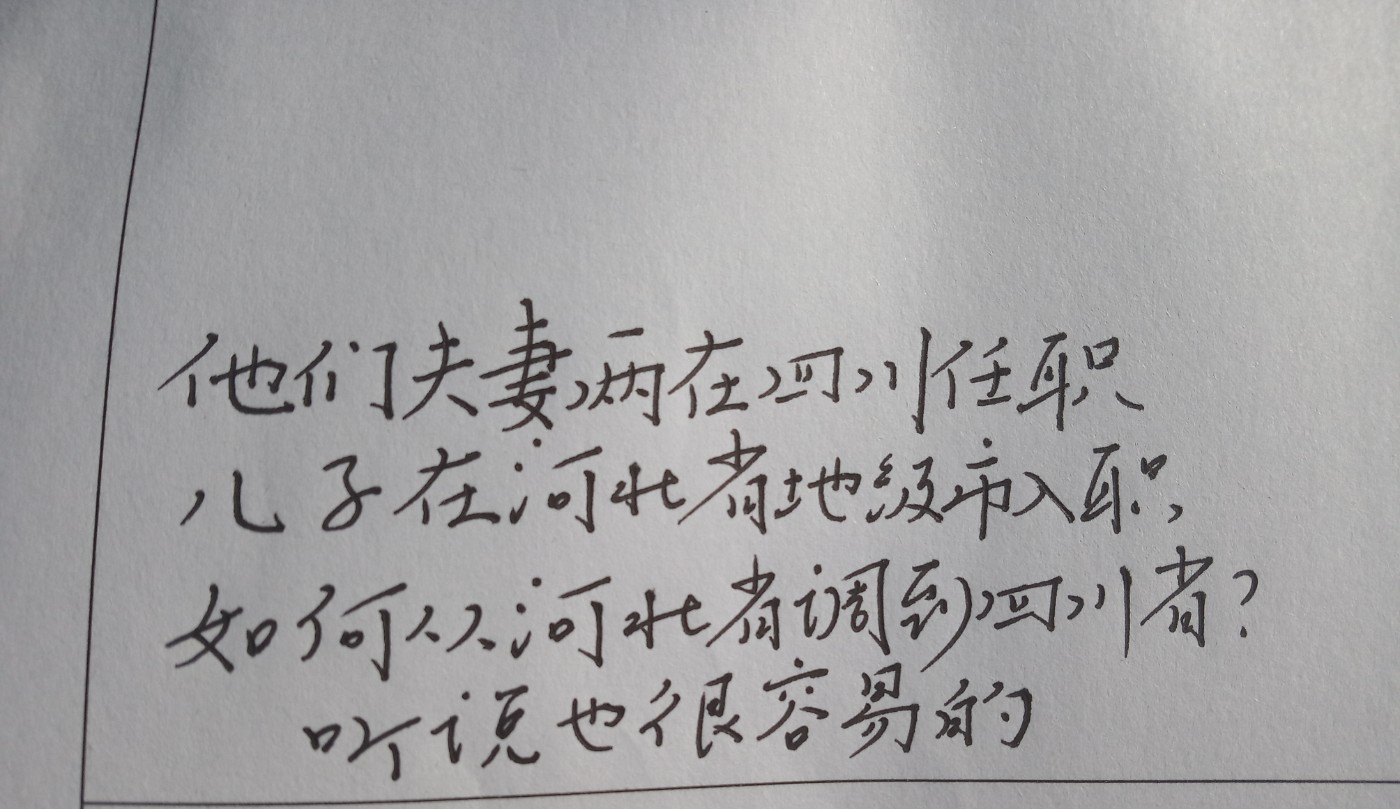 他们夫妻两在四川任职
儿子在河北省地级市入职,
如何从河北省调到四川省?
听说也很容易的